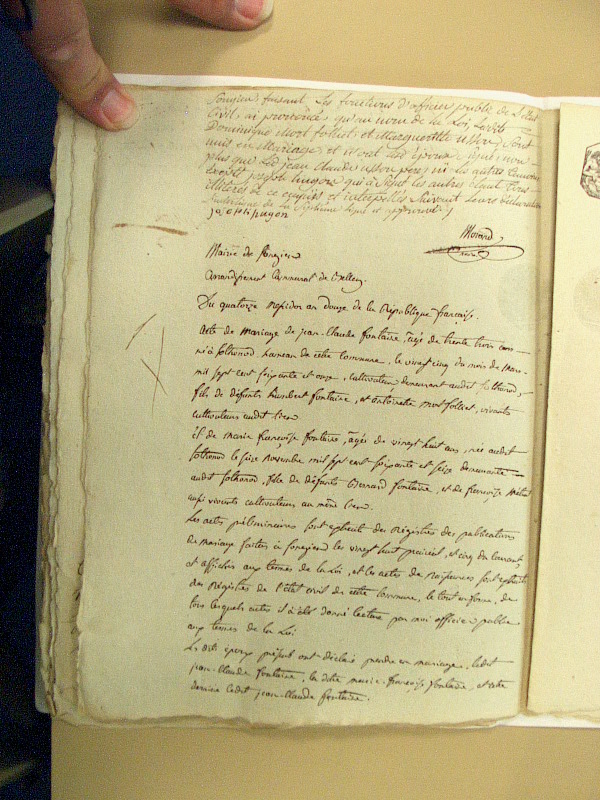 Songieu, faisant Les fonctions d'officier public de L'état
Civil, ai prononcé, qu'au nom de la Loi, Lesdits
Dominique mort follier et marguerite usson, sont
unis en Mariage et ils ont Les époux, signé, non
plus que Led. jean claude usson pere, ni Les autres
excepté joseph hugon qui a signé les autres étant
illiterés de ce enquis et interpellés Suivant Leurs déclaration
approuvé
joseph hugon
Morand
Maire
Mairie de Songieu
Arrondissement Communal de Belley.
Du quatorze Messidor an Douze de la République française.
Acte de Mariage de jean-Claude fontaine, âgé de trente trois ans
né à sothonod hameau de cette Commune, le vingt cinq du mois de Mars
mil sept cent soixante et onze, Cultivateur demeurant audit sothonod,
fils de défunts humbert fontaine, et antoinette mortfollier, vivants
cultivateurs audit lieu
Et de Marie françoise fontaine, âgée de vingt huit ans, née audit
sothonod le seize Novembre mil sept cent soixante et seize demeurante
audit sothonod, fille de défunts Bernard fontaine, et de françoise
aussi vivants cultivateurs au même lieu.
Les actes préliminaires sont extraits des Registres des publications
de mariage faites à songieu les vingt huit prairial, et cinq du Courant,
et affichés aux termes de la Loi, et les actes de naissances sont extraits
des Registres de l'état civil de cette Commune, le tout en forme, de
tous lesquels actes il a été donné lecture par moi officier public
aux termes de la Loi
Les dits époux présents ont déclaré prendre en mariage, ledit
jean-Claude fontaine, la dite marie-françoise fontaine, et cette
dernière ledit jean-Claude fontaine.